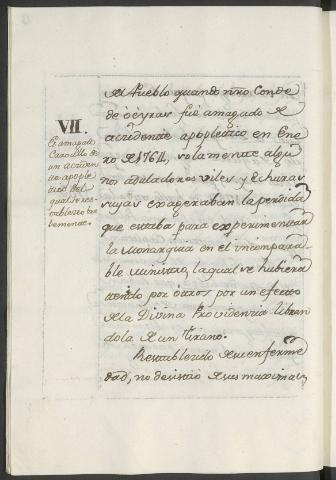 VII.
Es amagado
Carvallo de
un acciden
te apople
tico del
qual se res-
tablece bre
bemente.
del Pueblo quando nr̃o Conde
de òéyras fué amagado de
accidente apopléctico en Ene
ro de 1764, solamente algu
nos aduladores viles, y echuras
suyas exageraban la perdida
que estaba para experimentar
la Monarquia en el incompara
ble ministro, la qual se hubiera
tenido por ótros por un efecto
de la Divina Providencia libran
dola de un tirano.
Restablecido de su enferme
dad, no desistió de sus maximas,